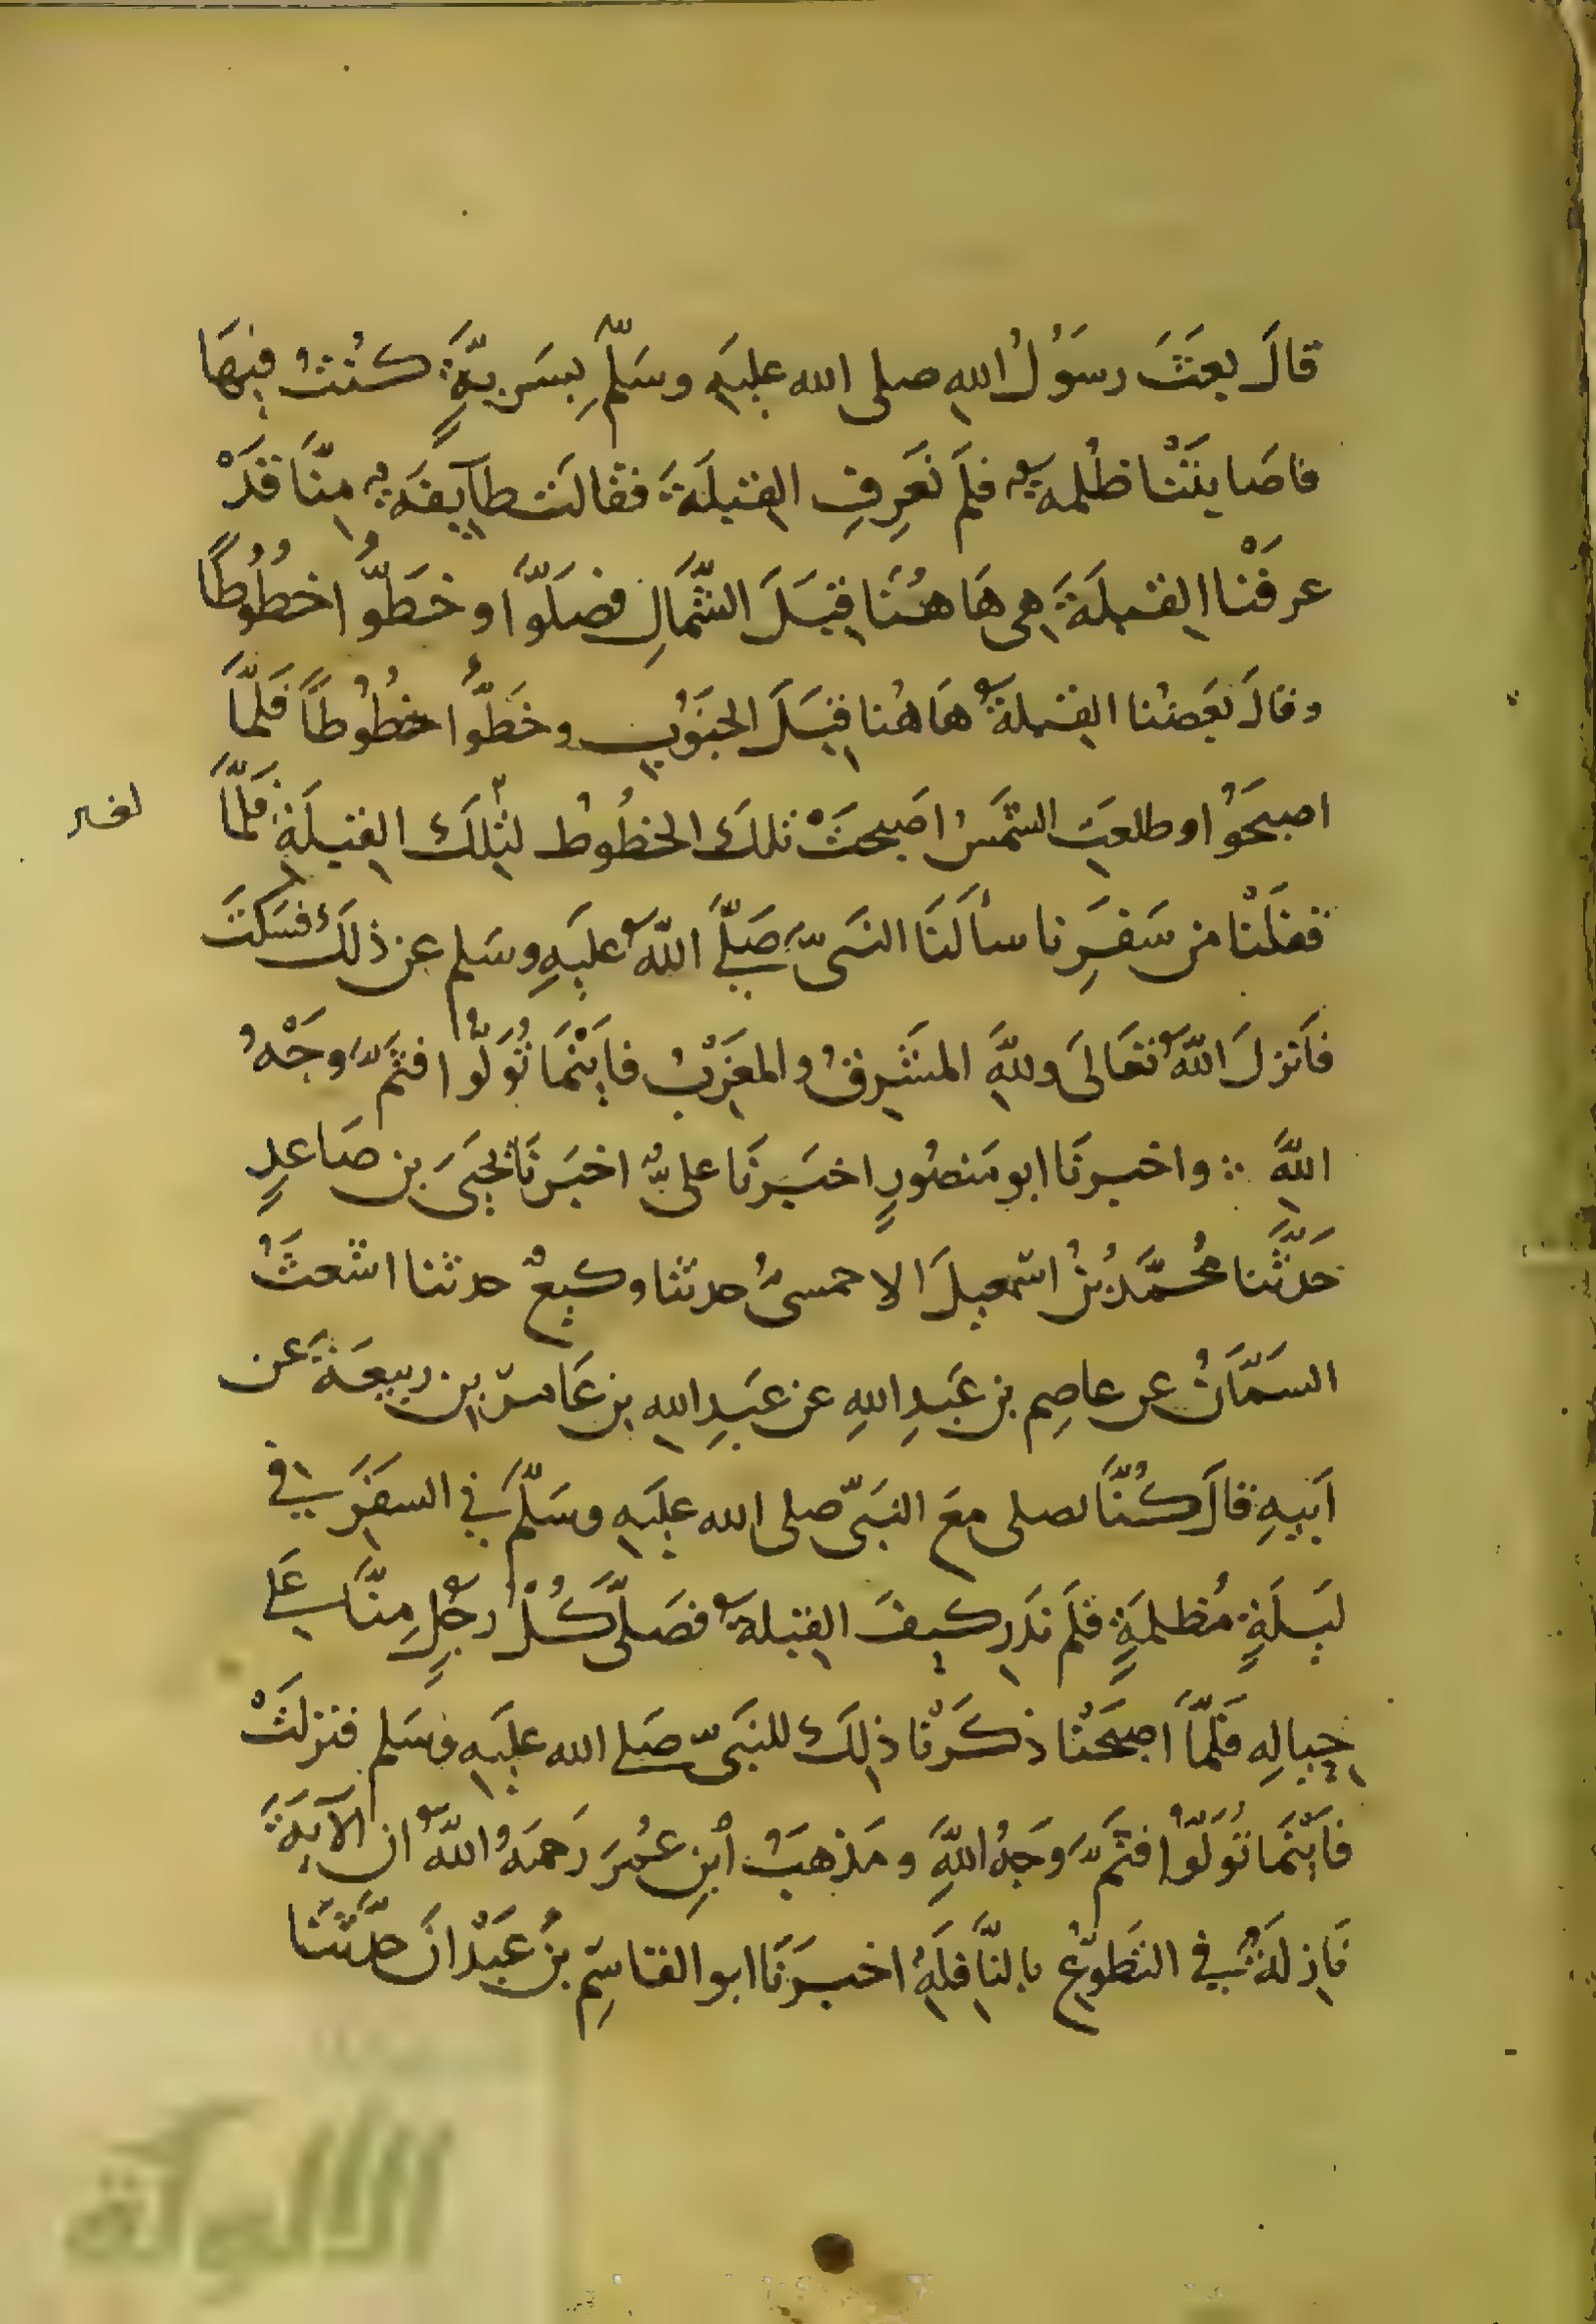 قالَ بعَثَ رسَوُلُ اللهِ صلى الله عليهِ وسَلّم بِسَريّةٍ كنتُ فيهَا
فاصَابتَنْا ظُلمةٌ فلَم نَعرِفِ القبلَةَ فقالَت طآيفَةٌ مِنّا قدْ
عرفْنا القبلَةَ هى هَاهُنَا قِبَلَ الشّمَالِ فصَلّوا وخَطّوُا خطُوُطاً
وقالَ بَعضُنا القبلةُ هَاهُنا قِبَلَ الجنَوُبِ وخَطّوُا خطُوُطاً فَلمّا
اصبَحَوُا وطلعتِ الشّمَسُ اصَبحَتْ تلكَ الخطُوُط لِتِلكَ القِبلَةِ فَلمّا
لغير
قفلَنْا من سَفَرِنا سألَنَا النَبىّ صَلّى اللّهُ عليَهِ وسَلم عن ذلكَ فسَكتَ
فاَنزلَ اللّهُ تعَالىَ وللهِ المشَرِقُ والمغَرِبُ فاَينْمَا تُوَلّوُا فثَمّ وجَهْ
اللهِ ∴ واخبرنَا ابو مَنصوُرٍ اخبَرنَا علىٌّ اخبَرنَا يَحيىَ بن صَاعدٍ
حَدثَّنا مُحمَّدُ بنُ اسمٰعيلَ الاحمسىُّ حدثنا وكيعٌ حدثنا اشعثَُ
السَمّانُ عن عاصِم بن عَبدِ اللهِ عن عَبدِ اللهِ بن عَامر بن ربيعَةَ عن
اَبيهِ قالَ كُنّا نصلى معَ النبَىّ صلى الله عليَهِ وسَلّمَ فى السفَرِ فى
ليَلَةٍ مُظلمةٍ فلَم نَدرِ كيفَ القبلةُ فصَلّى كُلُّ رجُلٍ مِنّا عَلى
حِيالِه فَلمّا اصبحَنا ذكَرنْا ذلِكَ للنبَىّ صَلى الله عليَهِ وسَلم فنزلَتْ
فاَينمَا تُوَلّوُا فثَمّ وَجهُ اللهِ ومَذهبُ ابنِ عُمرَ رَحمهُ اللّهُ ان الآيَةَ
نَازِلَةٌ فى التَطوّعِ بالنّافِلَةِ اخبرَنَا ابو القاسِم بنُ عَبدْانَ حدّثَنَا
الألوكة